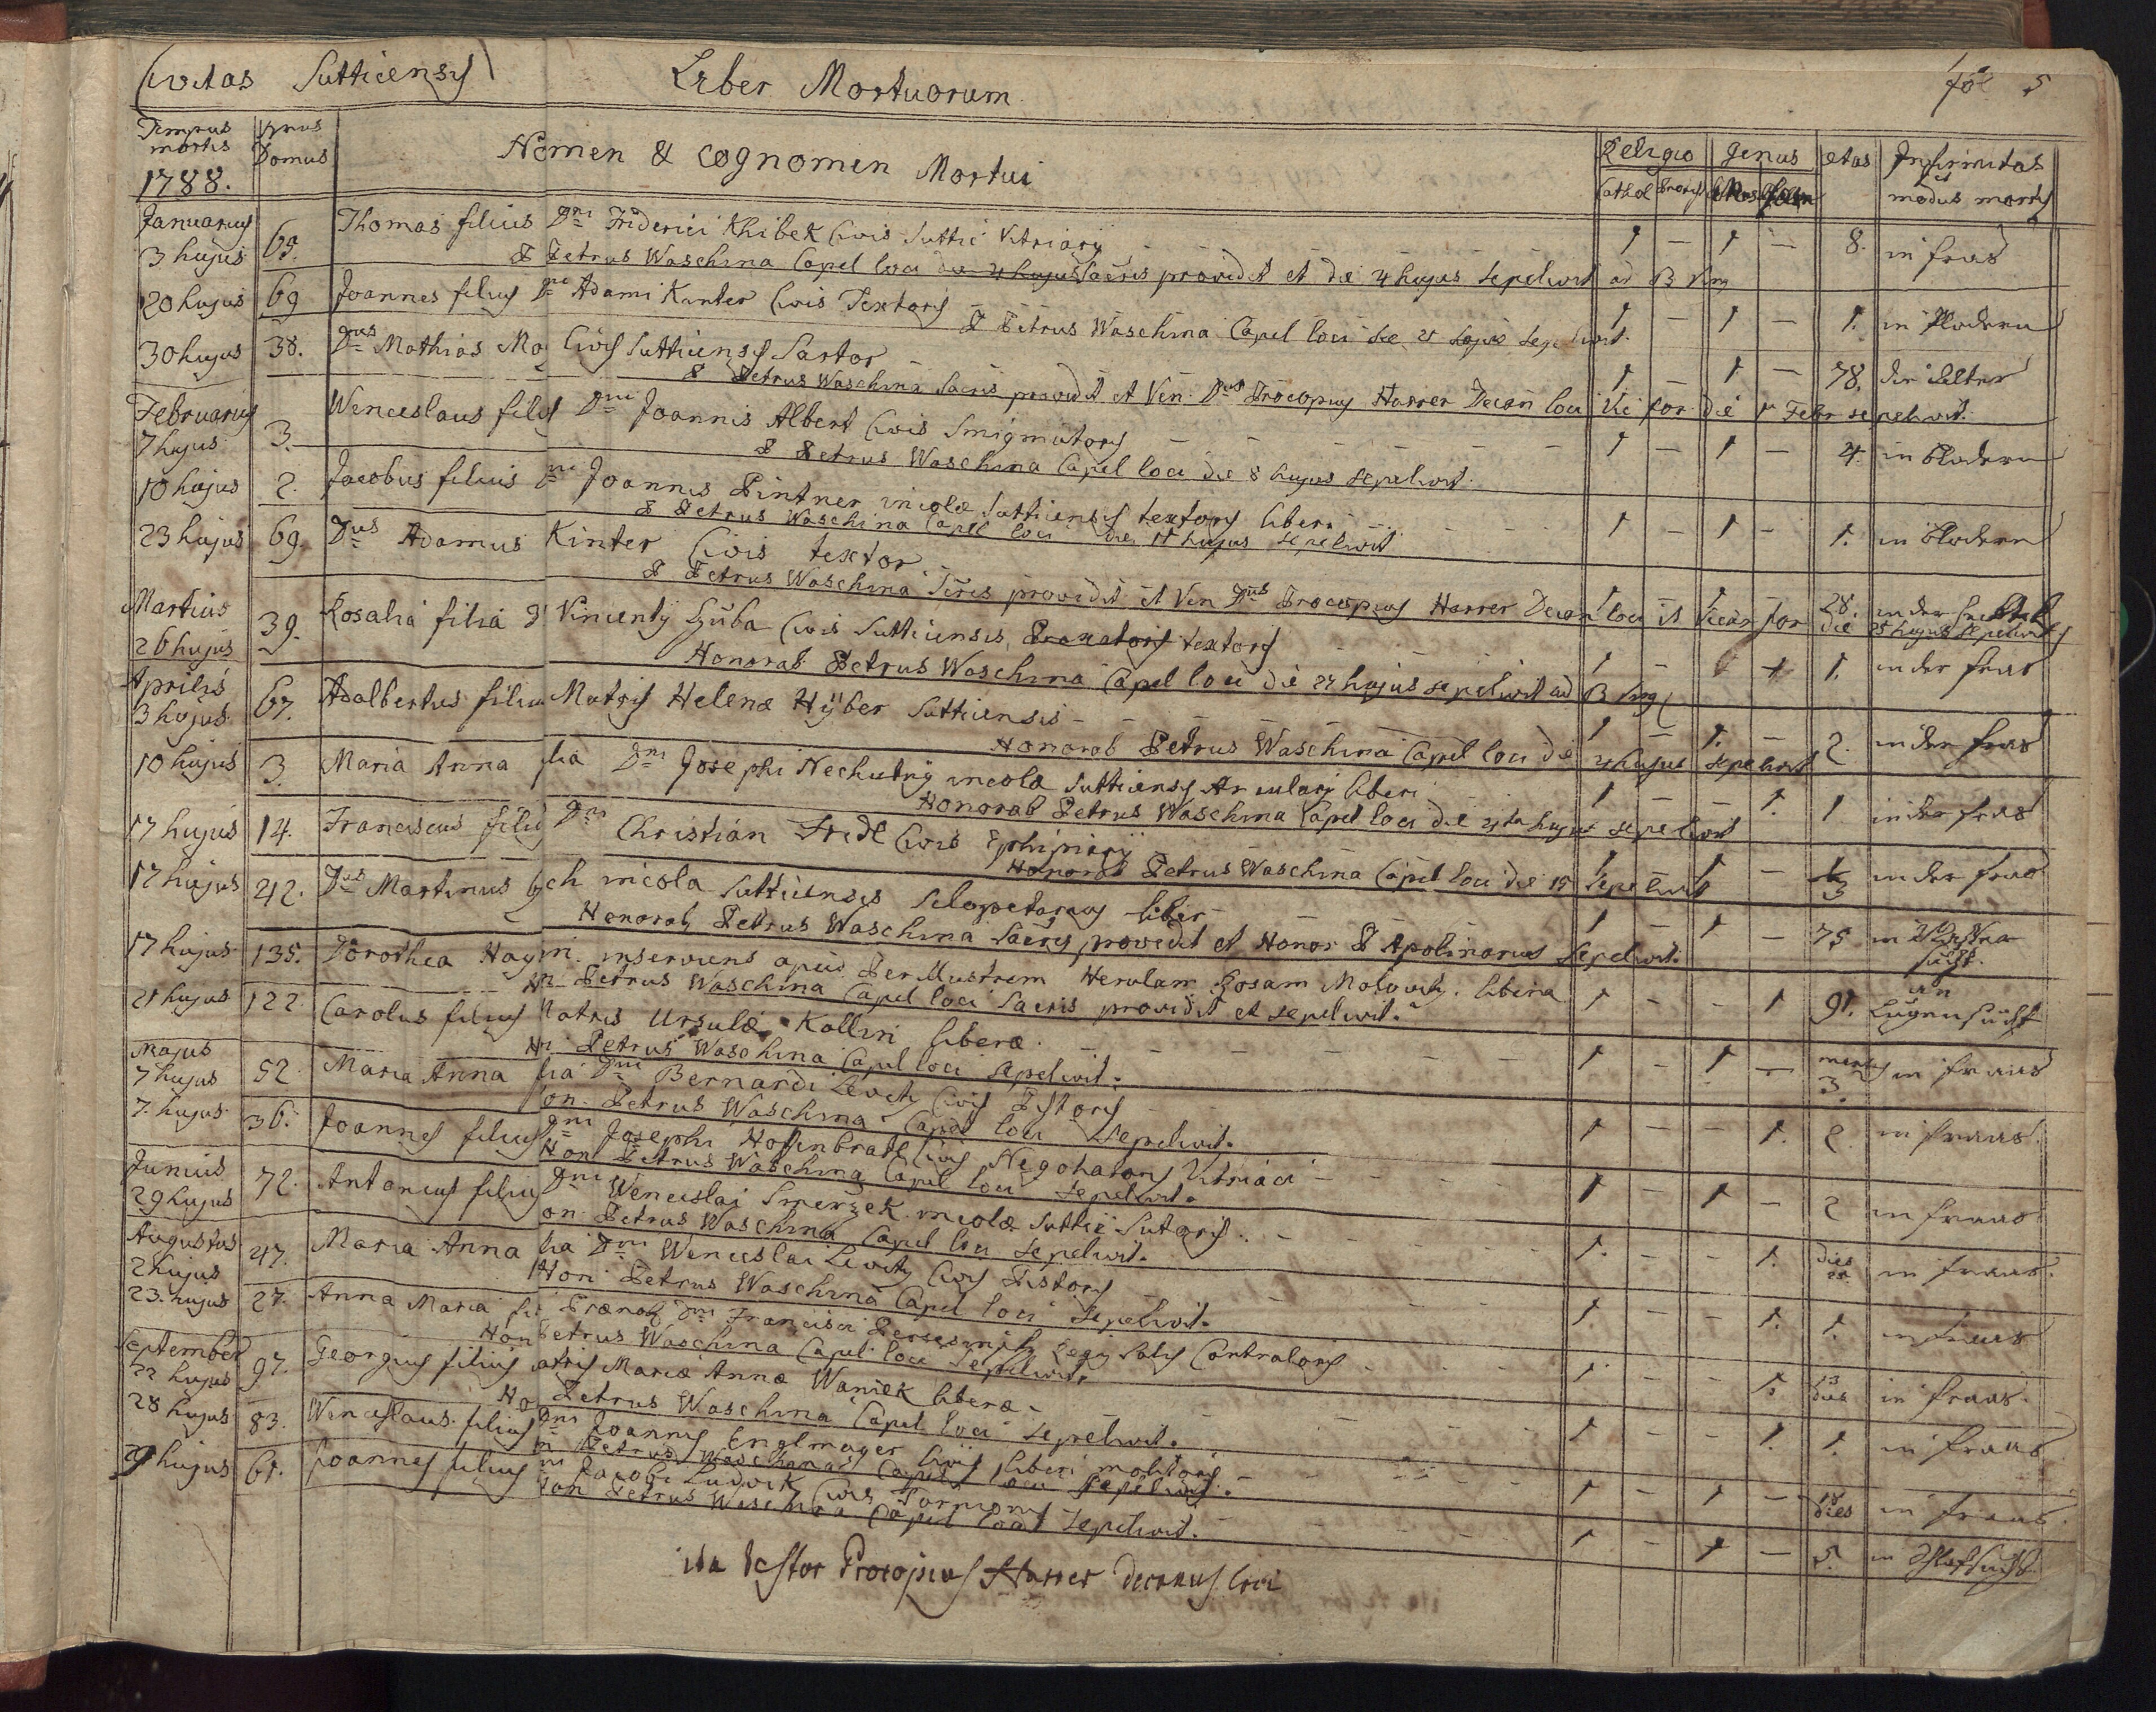 Civitas Sutticensis Liber Mortuorum fol 5
Tempus mortis 1788. Domus Nomen & cognomen Mortui Religio Genus etas Infirmitas et modus mortis
Cathol
Januarius
3 hujus 69. Thomas filius Dni Friderici Khibek Civis Suttic Vitriarii 1 – 1 – 8. in fras
P Petrus Waschina Capel loci die 4 hujus Sacris providit et die 4 hujus sepelivit ad B Virg
20 hujus 69 Joannes filius Dni Adami Kinter Civis Textoris 1 – 1 – 1. in Bladern
P Petrus Waschina Capel loci die 21 hujus sepelivit.
30 hujus 38. Dnus Mathias Civis Sutticensis Sartor 1 – 1 – 78. der Alter
P Petrus Waschina Sacris providit et Ven. Dnus Procopius Harrer Decan loci Vic for die 1 Febr sepelivit.
Februarius
7 hujus 3. Wenceslaus filius Dni Joannis Albert Civis Smigmatoris 1 – 1 – 4. in Bladern
P Petrus Waschina Capel loci die 8 hujus sepelivit.
10 hujus 2. Jacobus filius Dni Joannis Pintner incolæ Sutticensis textoris liberi 1 – 1 – 1. in Bladern
P Petrus Waschina Capel loci die 11 hujus sepelivit
23 hujus 69. Dnus Adamus Kinter Civis textor 1 1 28. in der
P Petrus Waschina Sacris providit et Ven Dnus Procopius Harrer Decan loci et Vicar for die 25 hujus sepelivit
Martius
26 hujus 39. Rosalia filia Dni Vincentij Civis Sutticensis textoris 1 – 1 1. in der fras
Honorab Petrus Waschina Capel loci die 27 hujus sepelivit ad B Virg
Aprilis
3 hujus 67. Adalbertus filius Matris Helenæ Hÿber Sutticensis 1 – 1. – 2. in der fras
Honorab Petrus Waschina Capel loci die 4 hujus sepelivit
10 hujus 3 Maria Anna filia Dni Josephi Nechutnÿ incolæ Sutticensis Arcularij liberi 1 – – 1. 1 in der fras
Honorab Petrus Waschina Capel loci die hujus sepelivit
17 hujus 14. Franciscus filius Dni Christian Fridl Civis Ephipiarij 1 1 – 3 in der fras
Honorab Petrus Waschina Capel loci die 19 sepelivit
17 hujus 42. Dnus Martinus incola Sutticensis Sclopetarius liber 1 1 – 75 in
Honorab Petrus Waschina Sacris providit et Honor P Apolinarius sepelivit.
17 hujus 135. Dorothea inserviens apud Perillustrem Herulam Rosam libera 1 – – 1 91. an Lungensucht
Hr Petrus Waschina Capel loci Sacris providit et sepelivit.
21 hujus 122. Carolus filius Matris Ursulæ Kollin liberæ 1 – 1 – 3. in fraas
Hr Petrus Waschina Capel loci sepelivit.
Majus
7 hujus 52 Maria Anna filia Dni Bernardi Civis Pistoris 1 – – 1. 2. in fraas.
Hon. Petrus Waschina Capel loci sepelivit.
7. hujus 36. Joannes filius Dni Josephi Hafenbradl Civis Negotiatoris Vitriaci 1 – 1 – 2 in fraas
Hon Petrus Waschina Capel loci sepelivit.
Junius
29 hujus 72. Antonius filius Dni Wenceslai Smerzek incolæ Suttic Sutoris 1. – – 1. dies in fraas.
Hon Petrus Waschina Capel loci sepelivit.
Augustus
2 hujus 47. Maria Anna filia Dni Wenceslai Civis Pistoris 1. – – 1. 1. in fraas
Hon Petrus Waschina Capel loci sepelivit.
23. hujus 27. Anna Maria filia Prænob Dni Francisci Regij Salis Contraloris 1. – – 1. 13 dies in fraas.
Hon Petrus Waschina Capel loci sepelivit.
September
22 hujus 97. Georgius filius Matris Mariæ Annæ Waniek liberæ 1 – – 1. 1. in fraas.
Hon Petrus Waschina Capel loci sepelivit.
28 hujus 83. Wenceslaus filius Dni Joannis Englmayer Civis liberi molitoris 1 – 1 – 18 dies in fraas.
Hon Petrus Waschina Capel loci sepelivit.
29 hujus 61. Joannes filius Dni Jacobi Ludwik Civis Tornionis 1 – 1 – 5.
Hon Petrus Waschina Capel loci sepelivit.
ita testor Procopius Harrer Decanus loci